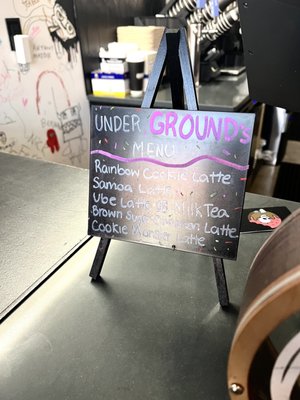 UNDER GROUND'S
MENU
Rainbow Cookie Latte
Samoa Latte
Ube Latte Milk Tea
Brown Sugar Latte
Cookie Monster Latte